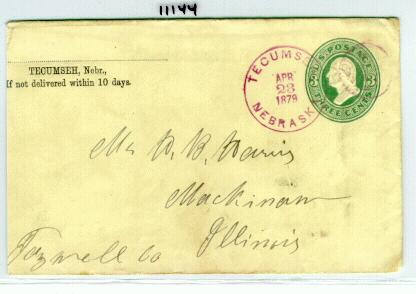 11144
TECUMSEH, Nebr.,
If not delivered within 10 days.
TECUMSE
APR
23
1879
NEBRASK
U.S. POSTAGE
THREE CENTS
Mr R. R. Harris
Mackinaw
Illinois
Tazwell Co